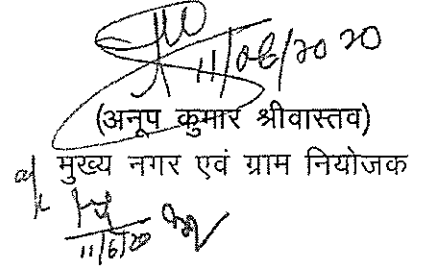 11/06/2020
(अनूप कुमार श्रीवास्तव)
मुख्य नगर एवं ग्राम नियोजक
11/6/20